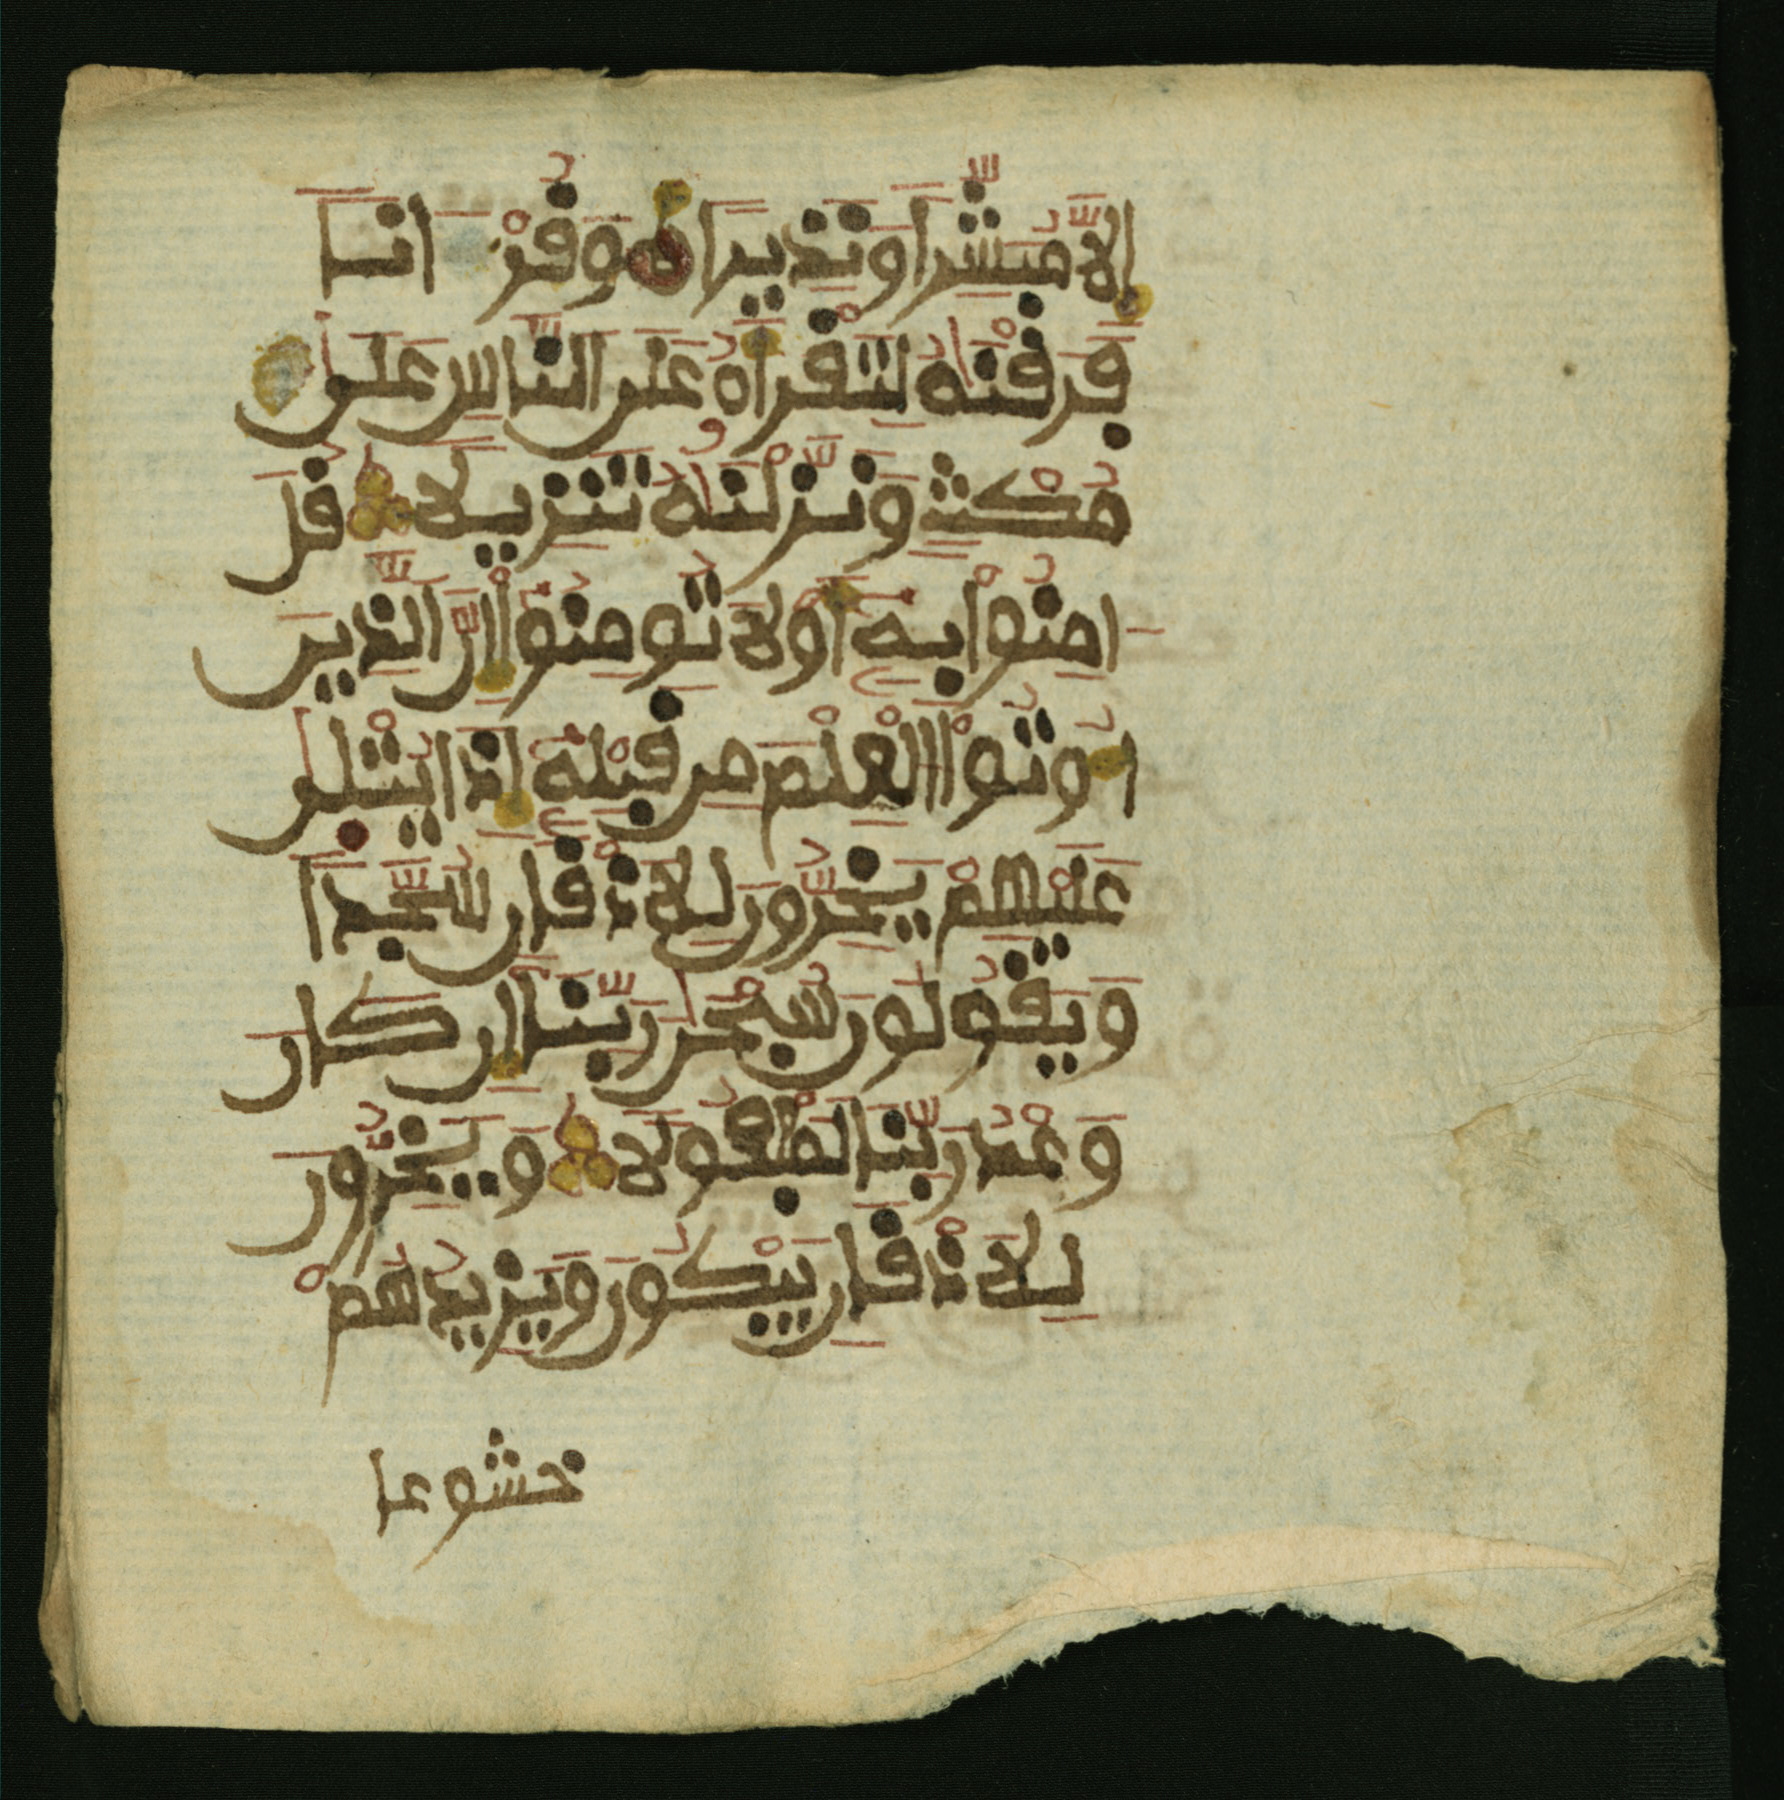 إِلَّا مُبَشِّرًا وَنَذِيرًا وَقُرْءَانًا
فَرَقْنَٰهُ لِتَقْرَأَهُ عَلَى النَّاسِ عَلَىٰ
مُكْثٍ وَنَزَّلْنَٰهُ تَنزِيلًا قُلْ
ءَامِنُوا بِهِ أَوْ لَا تُومِنُوا إِنَّ الَّذِينَ
أُوتُوا الْعِلْمَ مِن قَبْلِهِ إِذَا يُتْلَىٰ
عَلَيْهِمْ يَخِرُّونَ لِلَاذْقَانِ سُجَّدًا
وَيَقُولُونَ سُبْحَٰنَ رَبِّنَا إِن كَانَ
وَعْدُ رَبِّنَا لَمَفْعُولًا وَيَخِرُّونَ
لِلَاذْقَانِ يَبْكُونَ وَيَزِيدُهُمْ
خشوعا